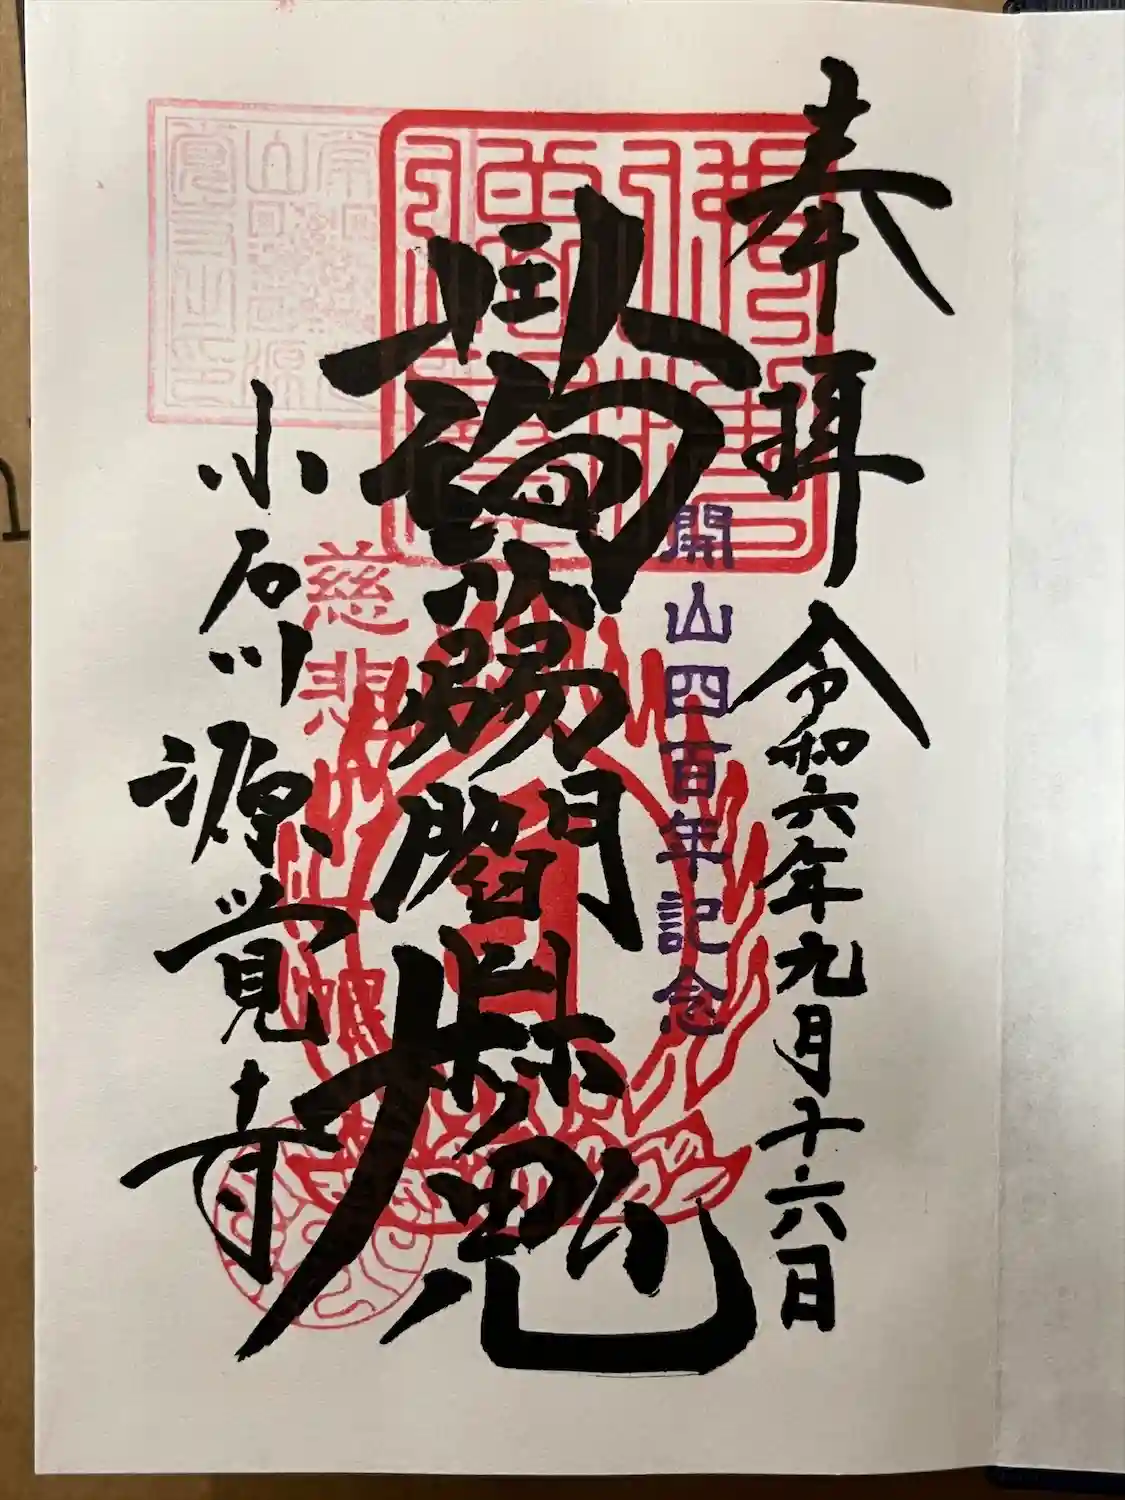 奉拝 令和六年九月十六日
開山四百年記念
蒟蒻閻魔
慈悲
小石川 源覚寺